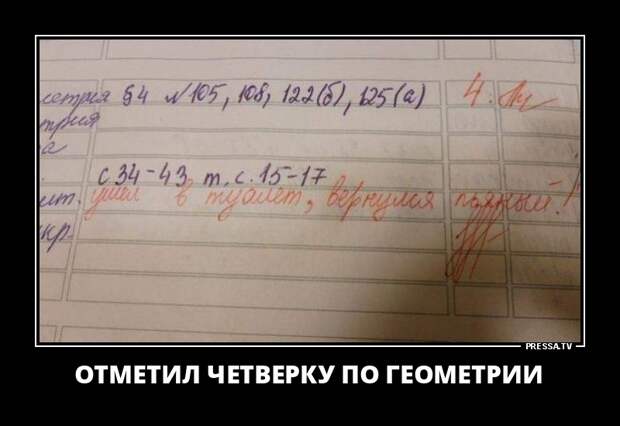 метрия §4 №105, 108, 122(б), 125(а) 4.
трия
а
с 34-43 т. с. 15-17
ит. ушел в туалет, вернулся пьяный!
укр.
PRESSA.TV
ОТМЕТИЛ ЧЕТВЕРКУ ПО ГЕОМЕТРИИ